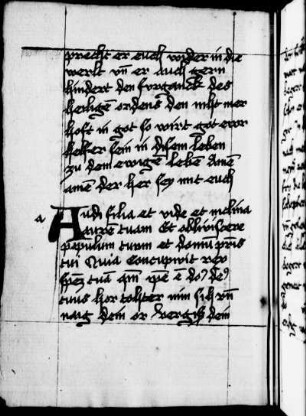 sprecht er euch wider in die
werlt vn̄ er auch gern
hindert den furganck des
heiligen ordens den nicht mer
hoft in got so wirt got ewr
helfer sein in disem leben
zu dem ewigen leben Amē
amē der her sey mit euch
a
Audi filia et vide et inclina
aurem tuam Et obliviscere
populum tuum et domū pris
tui Quia concupivit rex
tuā qm̄ ip̄e ē
tuus hor tohter nim vn̄
naig dein or vergiß dein